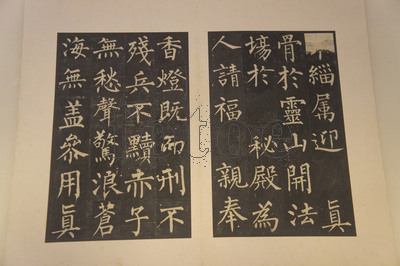 緇属迎 真
骨於靈山開法
場於 秘殿為
人請福 親奉
香燈既而刑不
殘兵不黷赤子
無愁聲驚浪蒼
海無盖叅用真